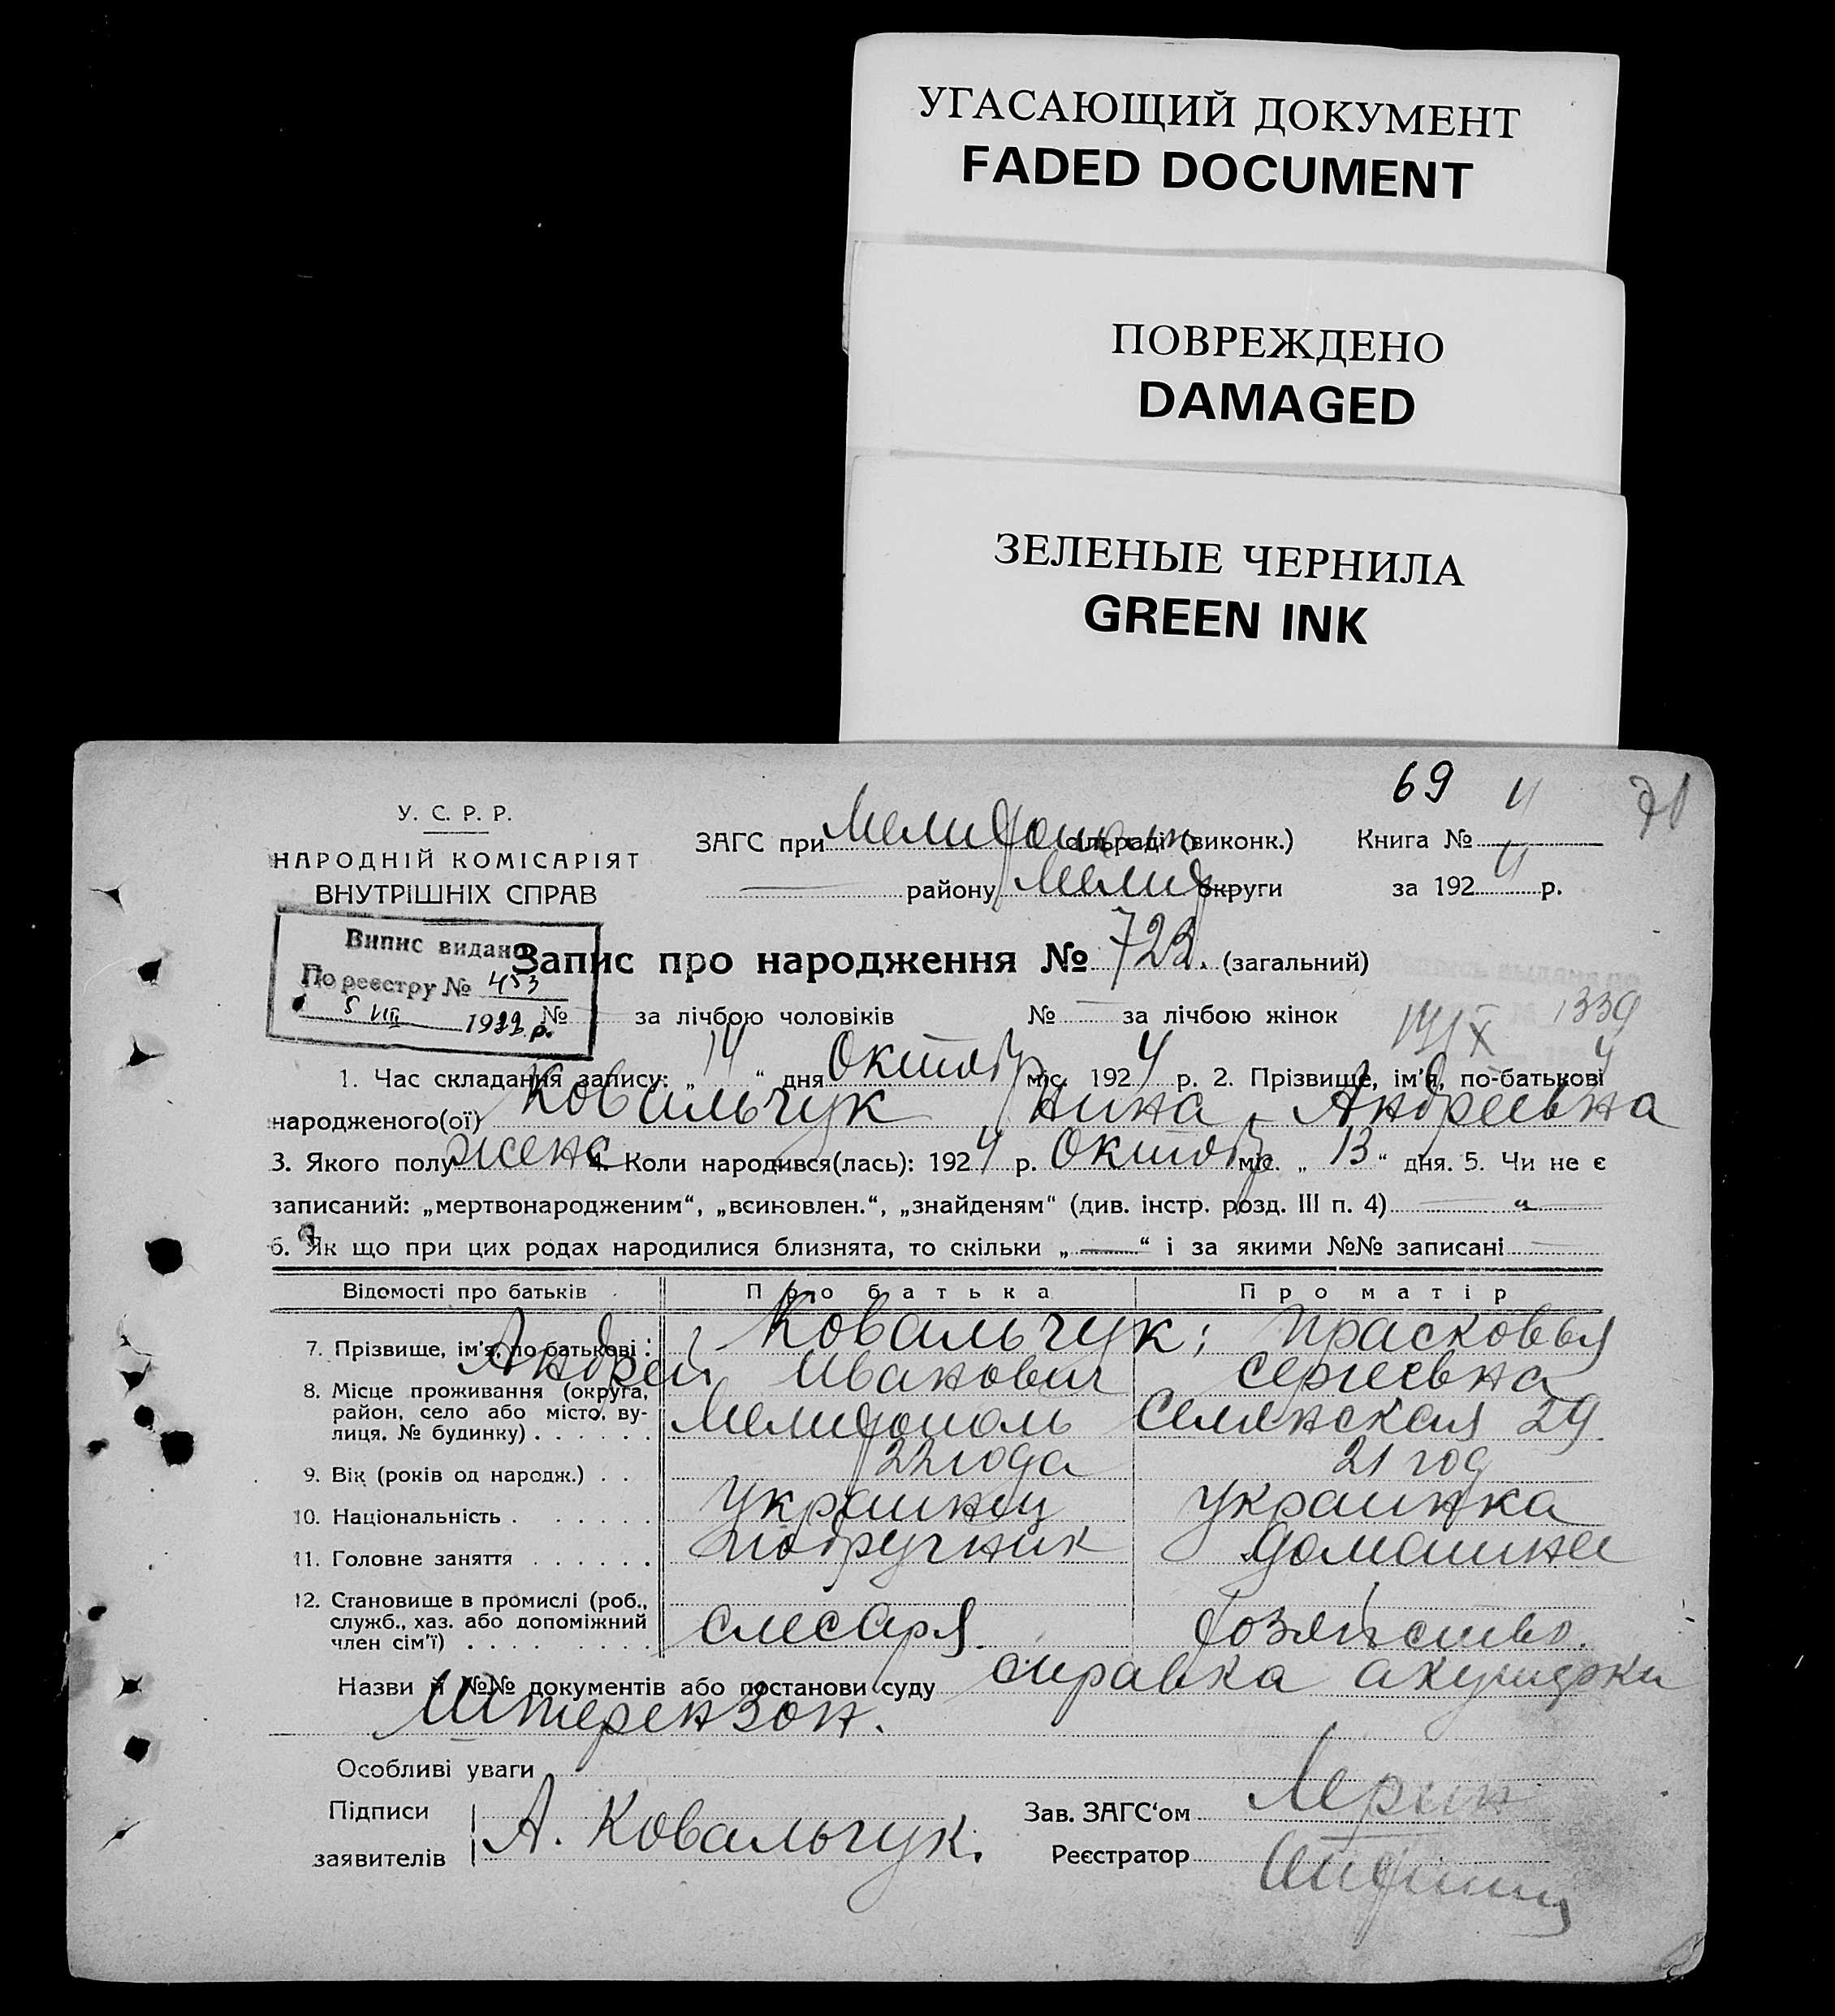 УГАСАЮЩИЙ ДОКУМЕНТ
FADED DOCUMENT
ПОВРЕЖДЕНО
DAMAGED
ЗЕЛЕНЫЕ ЧЕРНИЛА
GREEN INK
69 71
У. С. Р. Р.
НАРОДНІЙ КОМІСАРІЯТ
ВНУТРІШНІХ СПРАВ
ЗАГС при Мелитопольск сільраді (виконк.) Книга № 4
району Мелит округи за 1924 р.
Випис видано
По реєстру № 453
5 VIII 19 р.
Запис про народження № 722. (загальний)
№ за лічбою чоловіків № за лічбою жінок
1339
1. Час складання запису: „14“ дня Октябр міс. 1924 р. 2. Прізвище, ім'я, по-батькові
народженого(ої) Ковальчук Нина Андреевна
3. Якого полу женс 4. Коли народився(лась): 1924 р. Октябр міс. „13“ дня. 5. Чи не є
записаний: „мертвонародженим“, „всиновлен.“, „знайденям“ (див. інстр. розд. III п. 4)
6. Як що при цих родах народилися близнята, то скільки „—“ і за якими №№ записані
Відомості про батьків Про батька Про матір
7. Прізвище, ім'я, по-батькові: Ковальчук; Прасковья
Андрей Иванович Сергеевна
8. Місце проживання (округа,
район, село або місто, ву-
лиця, № будинку) Мелитополь Селянская 29
9. Вік (років од народж.) 22 года 21 год
10. Національність украинец украинка
11. Головне заняття подручник домашнее
12. Становище в промислі (роб.,
служб., хаз. або допоміжний
член сім'ї) слесаря хозяйство.
Назви й №№ документів або постанови суду справка акушерки
Штерензон.
Особливі уваги
Підписи
заявителів А. Ковальчук.
Зав. ЗАГС'ом
Реєстратор